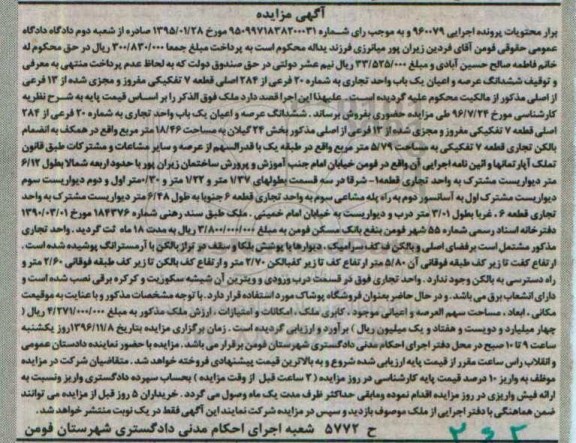 آگهی مزایده
برابر محتویات پرونده اجرایی ۹۶۰۰۷۹ و به موجب رای شماره ۹۵۰۹۹۷۱۸۳۸۲۰۰۰۳۱ مورخ ۱۳۹۵/۰۱/۲۸ صادره از شعبه دوم دادگاه دادگاه
عمومی حقوقی فومن آقای فردین زیران پور میانرزی فرزند یداله محکوم است به پرداخت مبلغ جمعا ۳۰۰/۸۳۰/۰۰۰ ریال در حق محکوم له
خانم فاطمه صالح حسین آبادی و مبلغ ۳۳/۵۲۵/۰۰۰ ریال نیم عشر دولتی در حق صندوق دولت که به لحاظ عدم پرداخت منتهی به معرفی
و توقیف ششدانگ عرصه و اعیان یک باب واحد تجاری به شماره ۲۰ فرعی از ۲۸۴ اصلی قطعه ۷ تفکیکی مفروز و مجزی شده از ۱۳ فرعی
از اصلی مذکور از مالکیت محکوم علیه گردیده است. علیهذا این اجرا قصد دارد ملک فوق الذکر را بر اساس قیمت پایه به شرح نظریه
کارشناسی مورخ ۹۶/۷/۲۴ طی مزایده حضوری بفروش برساند. ششدانگ عرصه و اعیان یک باب واحد تجاری به شماره ۲۰ فرعی از ۲۸۴
اصلی قطعه ۷ تفکیکی مفروز و مجزی شده از ۱۳ فرعی از اصلی مذکور بخش ۲۴ گیلان به مساحت ۱۸/۴۶ متر مربع واقع در همکف به انضمام
بالکن تجاری قطعه ۷ تفکیکی به مساحت ۵/۷۹ متر مربع واقع در طبقه یک با قدرالسهم از عرصه و سایر مشاعات و مشترکات طبق قانون
تملک آپارتمانها و ائین نامه اجرایی آن واقع در فومن خیابان امام جنب آموزش و پرورش ساختمان زیران پور با حدود اربعه شمالا بطول ۶/۱۲
متر دیواریست مشترک به واحد تجاری قطعه۱- شرقا در سه قسمت بطولهای ۱/۳۷ متر و ۱/۲۲ متر و ۰/۳۰ متر اول و دوم دیواریست سوم
دیواریست مشترک اول به آسانسور دوم به راه پله مشاعی سوم به واحد تجاری قطعه ۶ جنوبا به طول ۶/۴۸ متر دیواریست مشترک به واحد
تجاری قطعه ۶ . غربا بطول ۳/۰۱ متر درب و دیواریست به خیابان امام خمینی . ملک طبق سند رهنی شماره ۱۸۴۳۷۶ مورخ ۱۳۹۰/۰۳/۰۱
دفترخانه اسناد رسمی شماره ۵۵ شهر فومن بنفع بانک مسکن فومن به مبلغ ۳/۸۰۰/۰۰۰/۰۰۰ ریال به مدت ۱۸ ماه لت گردید. واحد تجاری
مذکور مشتمل است برفضای اصلی و بالکن ف کف سرامیک. دیوارها با پوشش بلکا و سقف در تراز بالکن با آرمسترانگ پوشیده شده است.
ارتفاع کفت تا زیر کف طبقه فوقانی آن ۵/۸۰ متر ارتفاع کف تا زیر کفبالکن ۲/۷۰ متر و ارتفاع کف بالکن تا زیر کف طبقه فوقانی ۲/۶۰ متر و
راه دسترسی به بالکن وجود ندارد. واحد تجاری فوق در قسمت درب ورودی و ویترین آن شیشه سکوریت و کرکره برقی نصب شده است و
دارای انشعاب برق می باشد. و در حال حاضر بعنوان فروشگاه پوشاک مورد استفاده قرار دارد. با توجه مشخصات مذکور و با عنایت به موقیعت
مکانی . ابعاد . مساحت سهم العرصه و اعیانی موجود . کابری ملک . امکانات و امتیازات . ارزش ملک مذکور به مبلغ ۴/۲۷۱/۰۰۰/۰۰۰ ریال (
چهار میلیارد و دویست و هفتاد و یک میلیون ریال ) برآورد و ارزیابی گردیده است . زمان برگزاری مزایده بتاریخ ۱۳۹۶/۱۱/۸ روز یکشنبه
ساعت ۹ تا ۱۰ صبح در محل دفتر اجرای احکام مدنی دادگستری شهرستان فومن برقرار می باشد. مزایده با حضور نماینده دادستان عمومی
و انقلاب راس ساعت مقرر از قیمت پایه ارزیابی شده شروع و به بالاترین قیمت پیشنهادی فروخته خواهد شد. متقاضیان شرکت در مزایده
موظف به واریز ۱۰ درصد قیمت پایه کارشناسی در روز مزایده ( ۲ ساعت قبل از وقت مزایده ) بحساب سپرده دادگستری واریز ونسبت به
ارائه فیش واریزی در روز مزایده اقدام نموده ومابقی حداکثر ظرف مدت یک ماه وصول می گردد . خریداران ۵ روز قبل از مزایده می توانند
ضمن هماهنگی با دفتر اجرایی از ملک موصوف بازدید و سپس در مزایده شرکت نمایند این آگهی فقط در یک نوبت منتشر خواهد شد.
ح ۵۷۷۲ شعبه اجرای احکام مدنی دادگستری شهرستان فومن